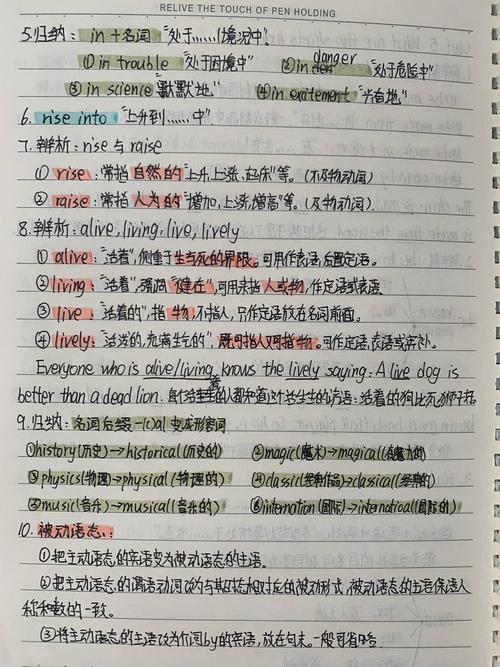 RELIVE THE TOUCH OF PEN HOLDING
5.归纳: in +名词 "处于……情况中"
①in trouble "处于困境中" ②in danger "处于危险中"
③in science "默默地" ④in excitement "兴奋地"
6. rise into "上升到……中".
7. 辨析: rise 与 raise
① rise: 常指 自然的 "上升, 上涨, 起床"等。(不及物动词)
② raise: 常指 人为的 "增加, 上涨, 增高"等。(及物动词).
8. 辨析: alive, living, live, lively
① alive: "活着", 侧重于生与死的界限。可用作表语, 后置定语。
② living: "活着", 强调 "健在", 可用来指 人或物, 作定语或表语
③ live "活着的", 指 物 不指人, 只作定语放在名词前面。
④ lively: "活泼的, 充满生气的", 既可指人又可指物。可作定语、表语或宾补。
Everyone who is alive/living knows the lively saying: A live dog is
better than a dead lion. 活着的人都知道 生生的谚语: 活着的狗比死狮子
9. 归纳: 名词后缀-ical 变成形容词
①history(历史)→historical(历史的) ②magic(魔术)→magical(有魔力的)
③physics(物理)→physical(物理的) ④classic(经典作品)→classical(经典的)
⑤music(音乐)→musical(音乐的) ⑥internation(国际)→internatioal(国际的)
10. 被动语态:
①把主动语态的宾语变为被动语态的主语。
②把主动语态的谓语动词改为与其时态相对应的被动形式, 被动语态的主语保谓人
称和数的一致。
③将主动语态的主语改为介词by的宾语, 放在句末, 一般可省略.